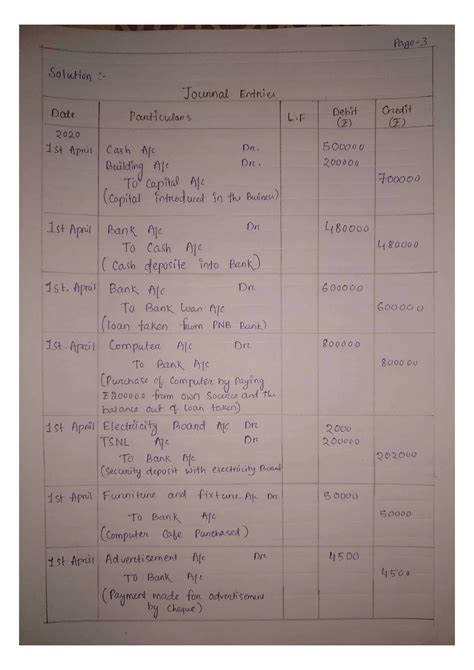 Page-3
Solution :-
Journal Entries
Date Particulars L.F Debit (₹) Credit (₹)
2020
1st April Cash A/c Dr. 500000
Building A/c Dr. 200000
To Capital A/c 700000
(Capital introduced in the Business)
1st April Bank A/c Dr 480000
To Cash A/c 480000
(Cash deposite into Bank)
1st. April Bank A/c Dr 600000
To Bank Loan A/c 600000
(loan taken from PNB Bank)
1st. April Computer A/c Dr. 800000
To Bank A/c 800000
(Purchase of Computer by Paying
₹200000 from own Source and the
balance out of loan taken)
1st April Electricity Board A/c Dr 2000
TSNL A/c Dr 200000
To Bank A/c 202000
(Security deposit with electricity Board
1st April Furniture and fixture A/c Dr 50000
To Bank A/c 50000
(Computer Cafe Purchased)
1st April Advertisement A/c Dr. 4500
To Bank A/c 4500
(Payment made for advertisement
by cheque)